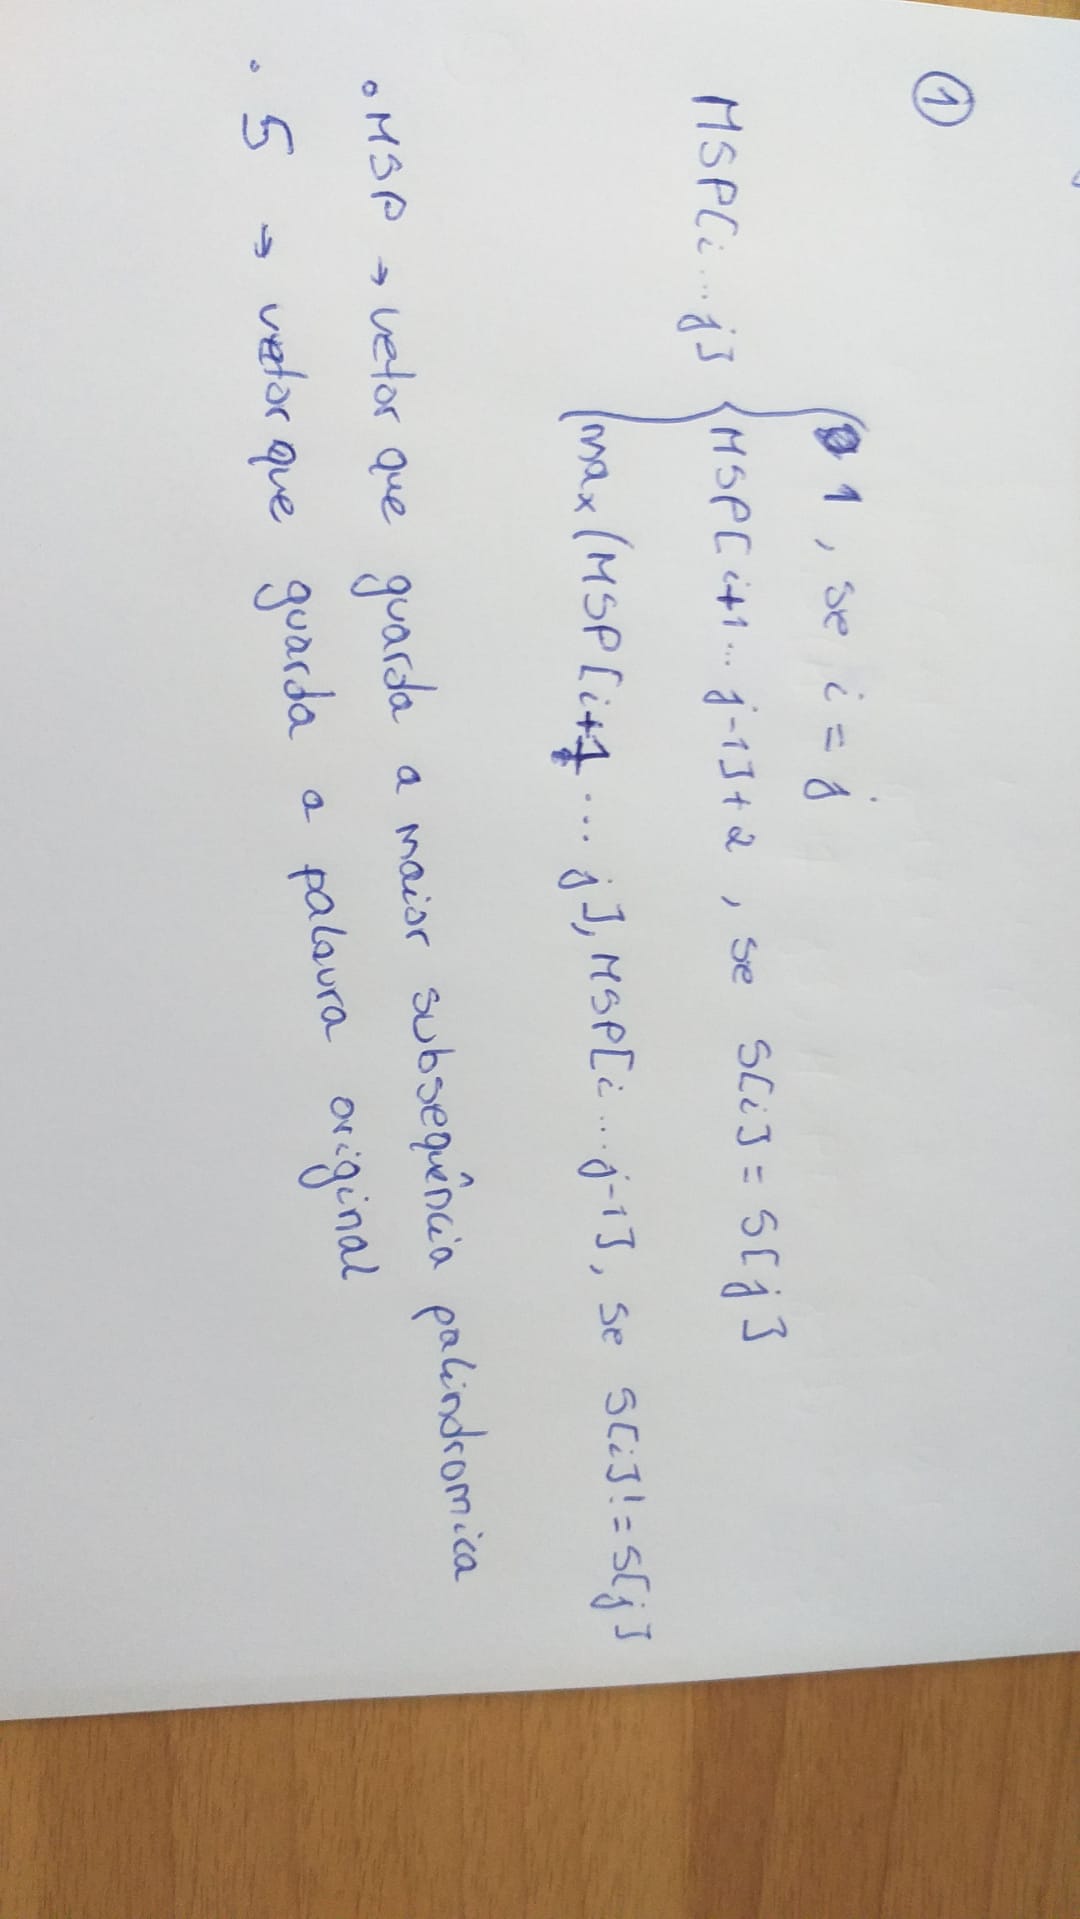 ①
1, se i = j
MSP[i...j] { MSP[i+1...j-1]+2, se S[i] = S[j]
max(MSP[i+1...j], MSP[i...j-1], se S[i] != S[j]
• MSP → vetor que guarda a maior subsequência palindromica
• S → vetor que guarda a palavra original